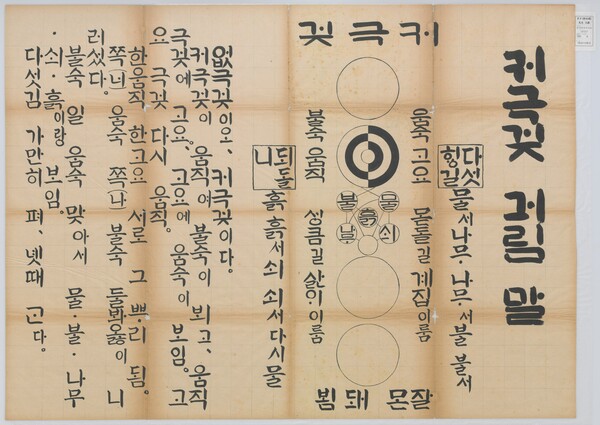 커극긫 그림 말
커극긫
다섯 힝길 물서나무·나무·서불 불서
움숙 고요 몬돌길 계집이룸
물 불 흙 나무 쇠
몬잘 돼 뵘
불숙 움직 싱큼길 산이·이룸
되돌니 흙 흙서 쇠 쇠서다시물
없극긫이오, 커극긫이다.
커극긫이 움직여 불숙이 뵈고, 움직
극긫에 고요. 고요에 움숙이 보임. 고
요 극긫 다시 움직.
한움직 한고요 서로 그 뿌리 됨.
쪽(너) 움숙 쪽(나) 불숙 둘봐옳이 니
러섰다.
불숙 일 움숙 맞아서 물·불·나무
·쇠·흙이랑 보임.
다섯김 가만히 펴, 넷때 곤다.